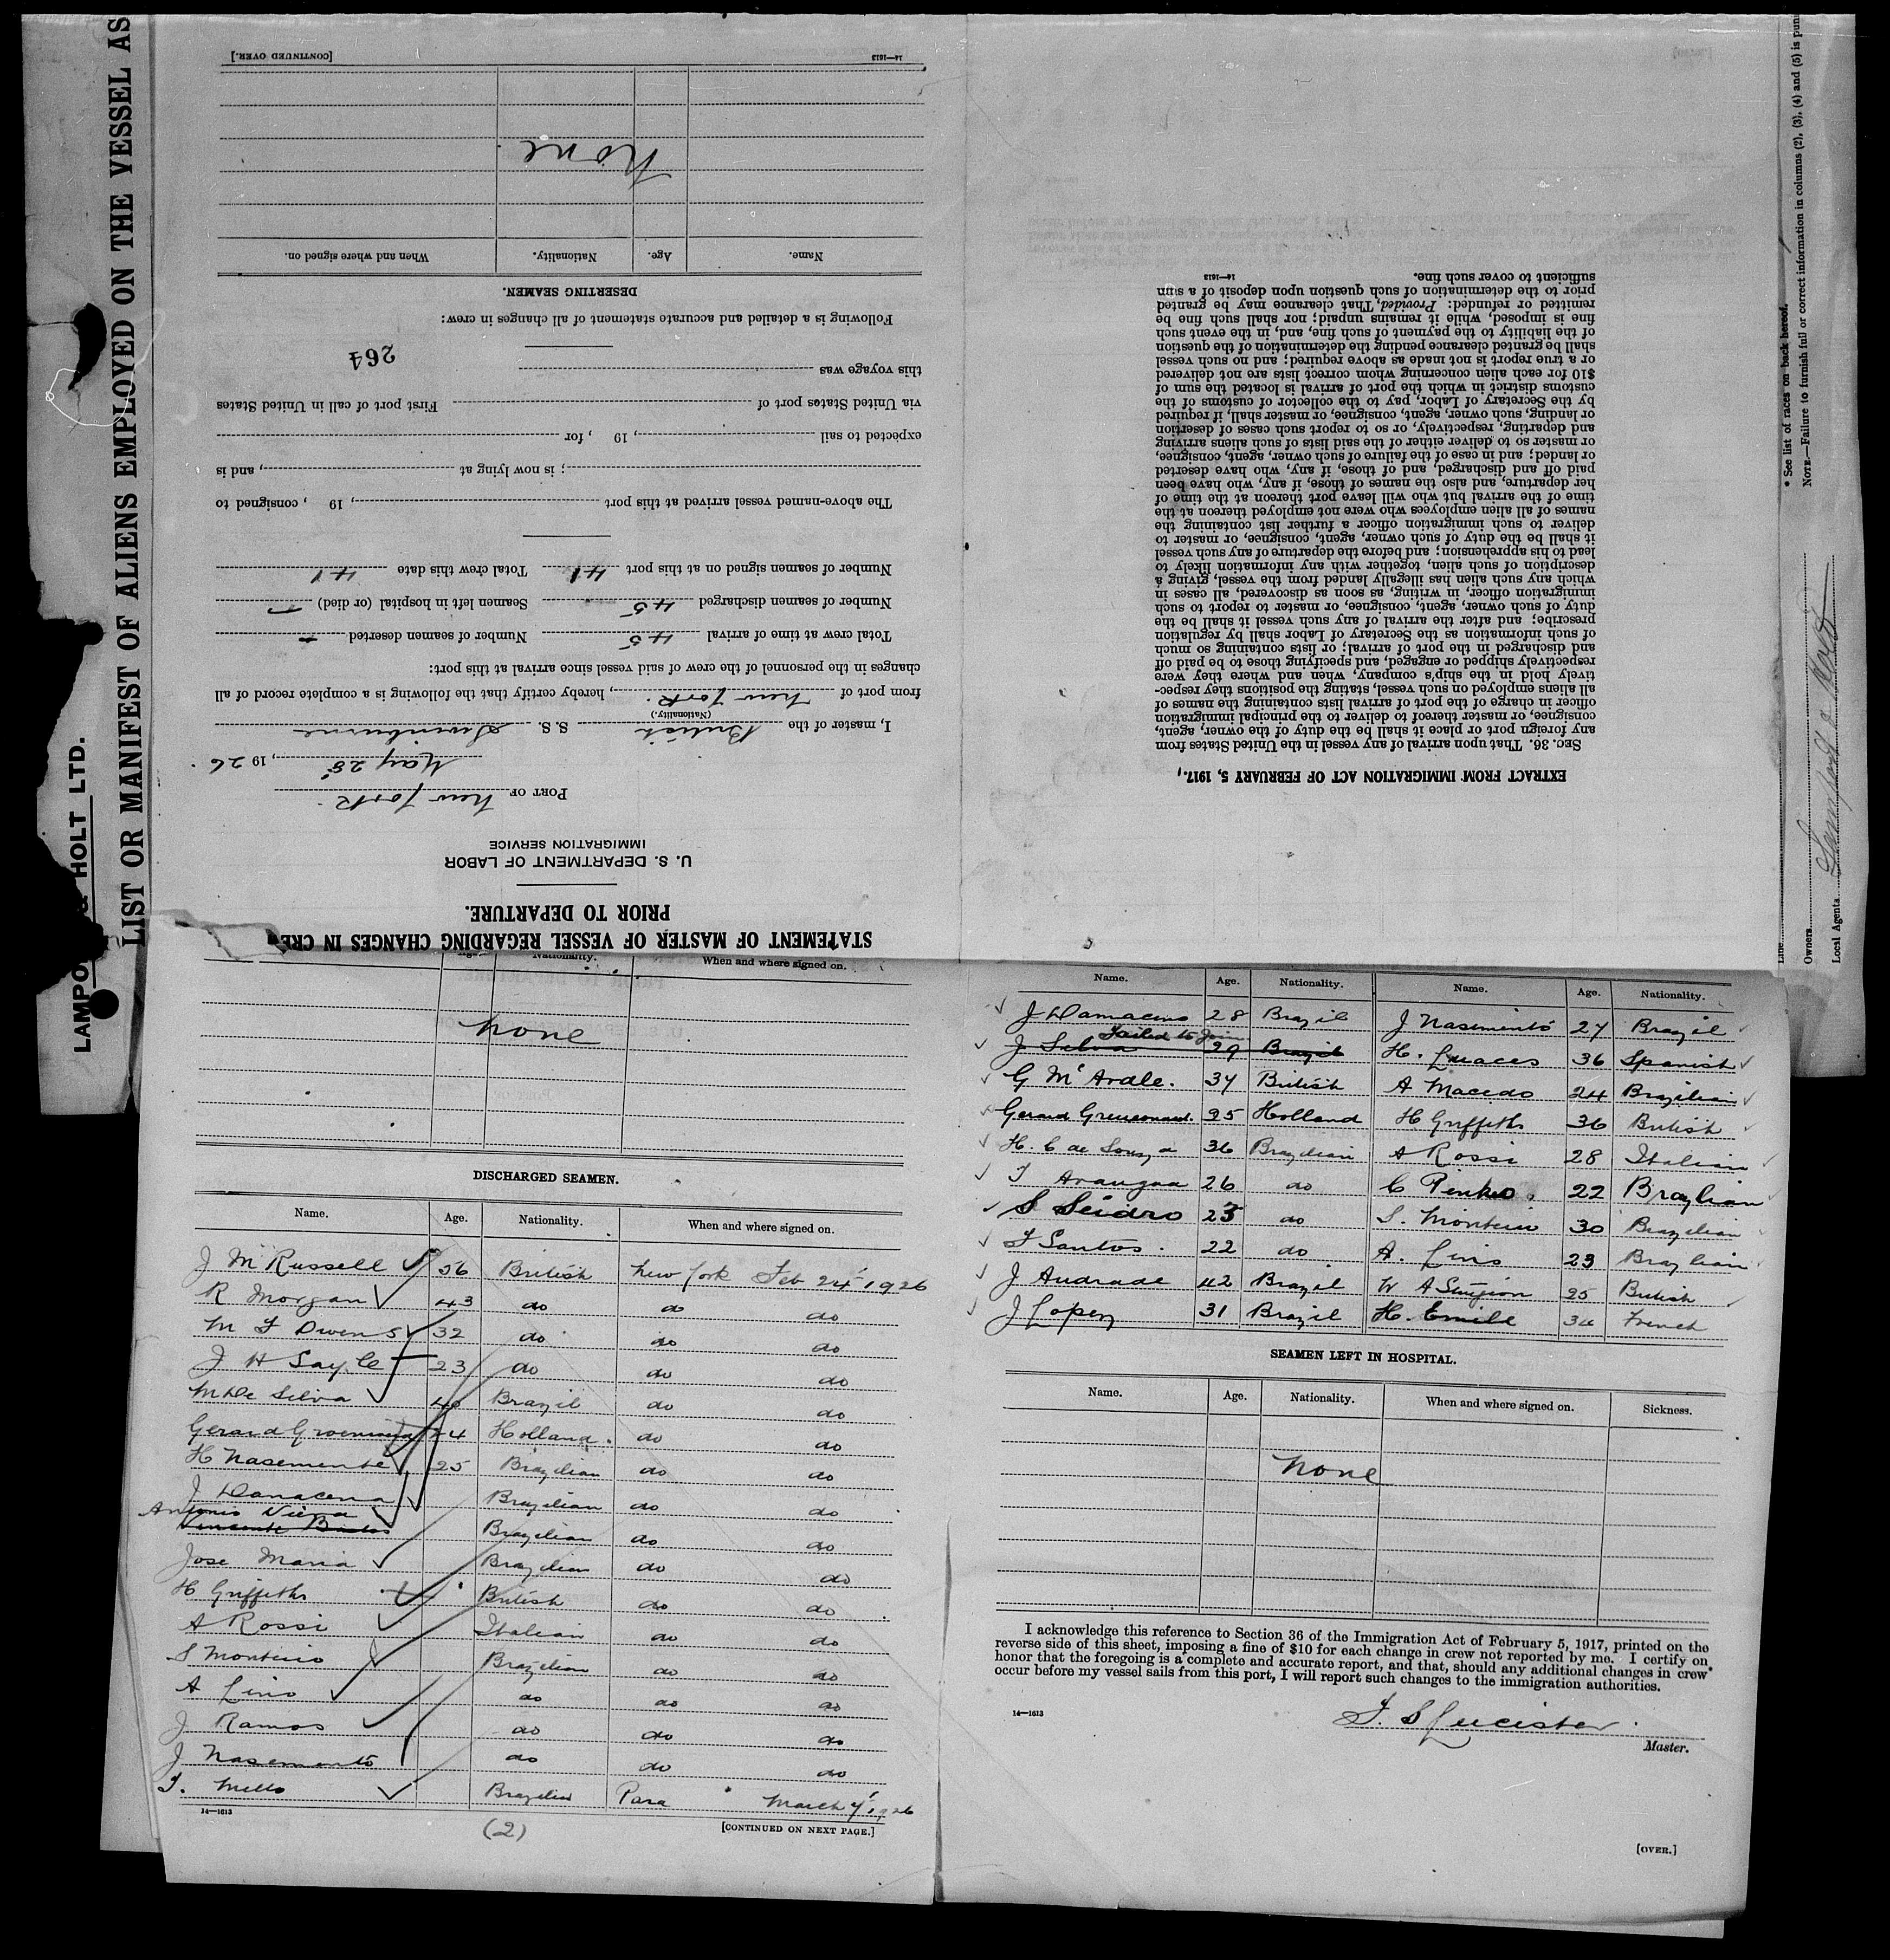 LAMPO & HOLT LTD.
LIST OR MANIFEST OF ALIENS EMPLOYED ON THE VESSEL AS
STATEMENT OF MASTER OF VESSEL REGARDING CHANGES IN CRE
PRIOR TO DEPARTURE.
U. S. DEPARTMENT OF LABOR
IMMIGRATION SERVICE
PORT OF New York
May 28, 1926.
I, master of the British S. S. Swinburne
(Nationality.)
from port of New York, hereby certify that the following is a complete record of all
changes in the personnel of the crew of said vessel since arrival at this port:
Total crew at time of arrival 45 Number of seamen deserted –
Number of seamen discharged 45 Seamen left in hospital (or died) –
Number of seamen signed on at this port 41 Total crew this date 41
The above-named vessel arrived at this port , 19 , consigned to
; is now lying at , and is
expected to sail , 19 , for
via United States port of First port of call in United States
this voyage was
264
Following is a detailed and accurate statement of all changes in crew:
DESERTING SEAMEN.
Name. Age. Nationality. When and where signed on.
None
14—1613 [CONTINUED OVER.]
EXTRACT FROM IMMIGRATION ACT OF FEBRUARY 5, 1917.
SEC. 36. That upon arrival of any vessel in the United States from
any foreign port or place it shall be the duty of the owner, agent,
consignee, or master thereof to deliver to the principal immigration
officer in charge of the port of arrival lists containing the names of
all aliens employed on such vessel, stating the positions they respec-
tively hold in the ship's company, when and where they were
respectively shipped or engaged, and specifying those to be paid off
and discharged in the port of arrival; or lists containing so much
of such information as the Secretary of Labor shall by regulation
prescribe; and after the arrival of any such vessel it shall be the
duty of such owner, agent, consignee, or master to report to such
immigration officer, in writing, as soon as discovered, all cases in
which any such alien has illegally landed from the vessel, giving a
description of such alien, together with any information likely to
lead to his apprehension; and before the departure of any such vessel
it shall be the duty of such owner, agent, consignee, or master to
deliver to such immigration officer a further list containing the
names of all alien employees who were not employed thereon at the
time of the arrival but who will leave port thereon at the time of
her departure, and also the names of those, if any, who have been
paid off and discharged, and of those, if any, who have deserted
or landed; and in case of the failure of such owner, agent, consignee,
or master so to deliver either of the said lists of such aliens arriving
and departing, respectively, or so to report such cases of desertion
or landing, such owner, agent, consignee, or master shall, if required
by the Secretary of Labor, pay to the collector of customs of the
customs district in which the port of arrival is located the sum of
$10 for each alien concerning whom correct lists are not delivered
or a true report is not made as above required; and no such vessel
shall be granted clearance pending the determination of the question
of the liability to the payment of such fine, and, in the event such
fine is imposed, while it remains unpaid; nor shall such fine be
remitted or refunded: Provided, That clearance may be granted
prior to the determination of such question upon deposit of a sum
sufficient to cover such fine.
14—1613
* See list of races on back hereof.
NOTE.—Failure to furnish full or correct information in columns (2), (3), (4) and (5) is pun
Line
Owners
Local Agents Lamport & Holt
Nationality. When and where signed on.
None
DISCHARGED SEAMEN.
Name. Age. Nationality. When and where signed on.
J M Russell 56 British New York Feb 24 1926
R Morgan 43 do do do
M F Owens 32 do do do
J H Sayle 23 do do do
M De Silva 40 Brazil do do
Gerard 24 Holland. do do
H Nasemente 25 Brazilian do do
J Damacena Brazilian do do
Antonio Viera
Brazilian do do
Jose Maria Brazilian do do
H Griffiths British do do
A Rossi Italian do do
S Monteiro Brazilian do do
A Lino do do do
J Ramos do do do
J Nasemento do do do
F. Mello Brazilian Para March 7 1926
14—1613
(2)
[CONTINUED ON NEXT PAGE.]
Name. Age. Nationality. Name. Age. Nationality.
J Damaceno 28 Brazil J Nasimento 27 Brazil
Failed to Join
J Selva 29 Brazil H. Luaces 36 Spanish
G McArdle. 37 British A Macedo 24 Brazilian
Gerard 25 Holland H Griffiths 36 British
H. C de Souza 36 Brazilian A Rossi 28 Italian
T 26 do C 22 Brazilian
S Seidro 25 do S. Monteiro 30 Brazilian
F Santos. 22 do A. Lino 23 Brazilian
J Andrade 42 Brazil W A 25 British
J Lopez 31 Brazil H. Emile 34 French
SEAMEN LEFT IN HOSPITAL.
Name. Age. Nationality. When and where signed on. Sickness.
None
I acknowledge this reference to Section 36 of the Immigration Act of February 5, 1917, printed on the
reverse side of this sheet, imposing a fine of $10 for each change in crew not reported by me. I certify on
honor that the foregoing is a complete and accurate report, and that, should any additional changes in crew
occur before my vessel sails from this port, I will report such changes to the immigration authorities.
14—1613
Master.
[OVER.]